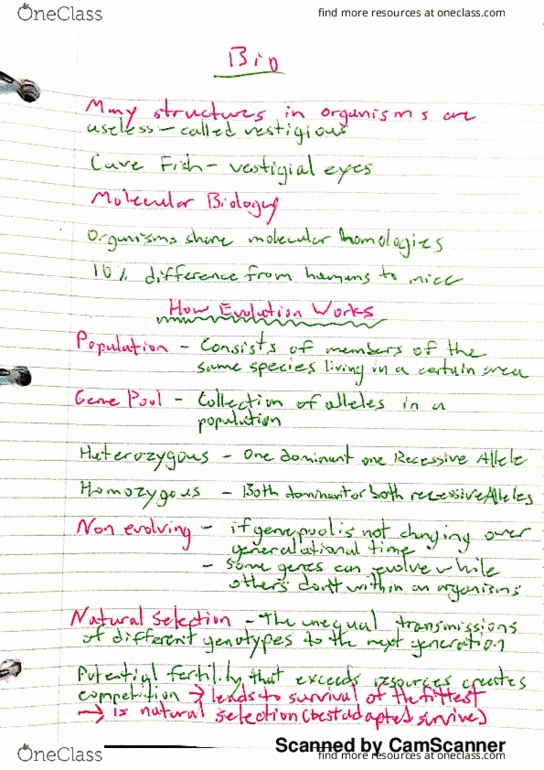 OneClass find more resources at oneclass.com
Bio
Many structures in organisms are
useless - called vestigious
Cave Fish - vestigial eyes
Molecular Biology
Organisms share molecular homologies
10% difference from humans to mice
How Evolution Works
Population - Consists of members of the
same species living in a certain area
Gene Pool - Collection of alleles in a
population
Heterozygous - One dominant one Recessive Allele
Homozygous - Both dominant or both recessive Alleles
Non evolving - if gene pool is not changing over
generational time
- some genes can evolve while
others don't within an organisms
Natural Selection - The unequal transmissions
of different genotypes to the next generation
Potential fertility that exceeds resources creates
competition → leads to survival of the fittest
→ is natural selection (best adapted survive)
Scanned by CamScanner
OneClass find more resources at oneclass.com